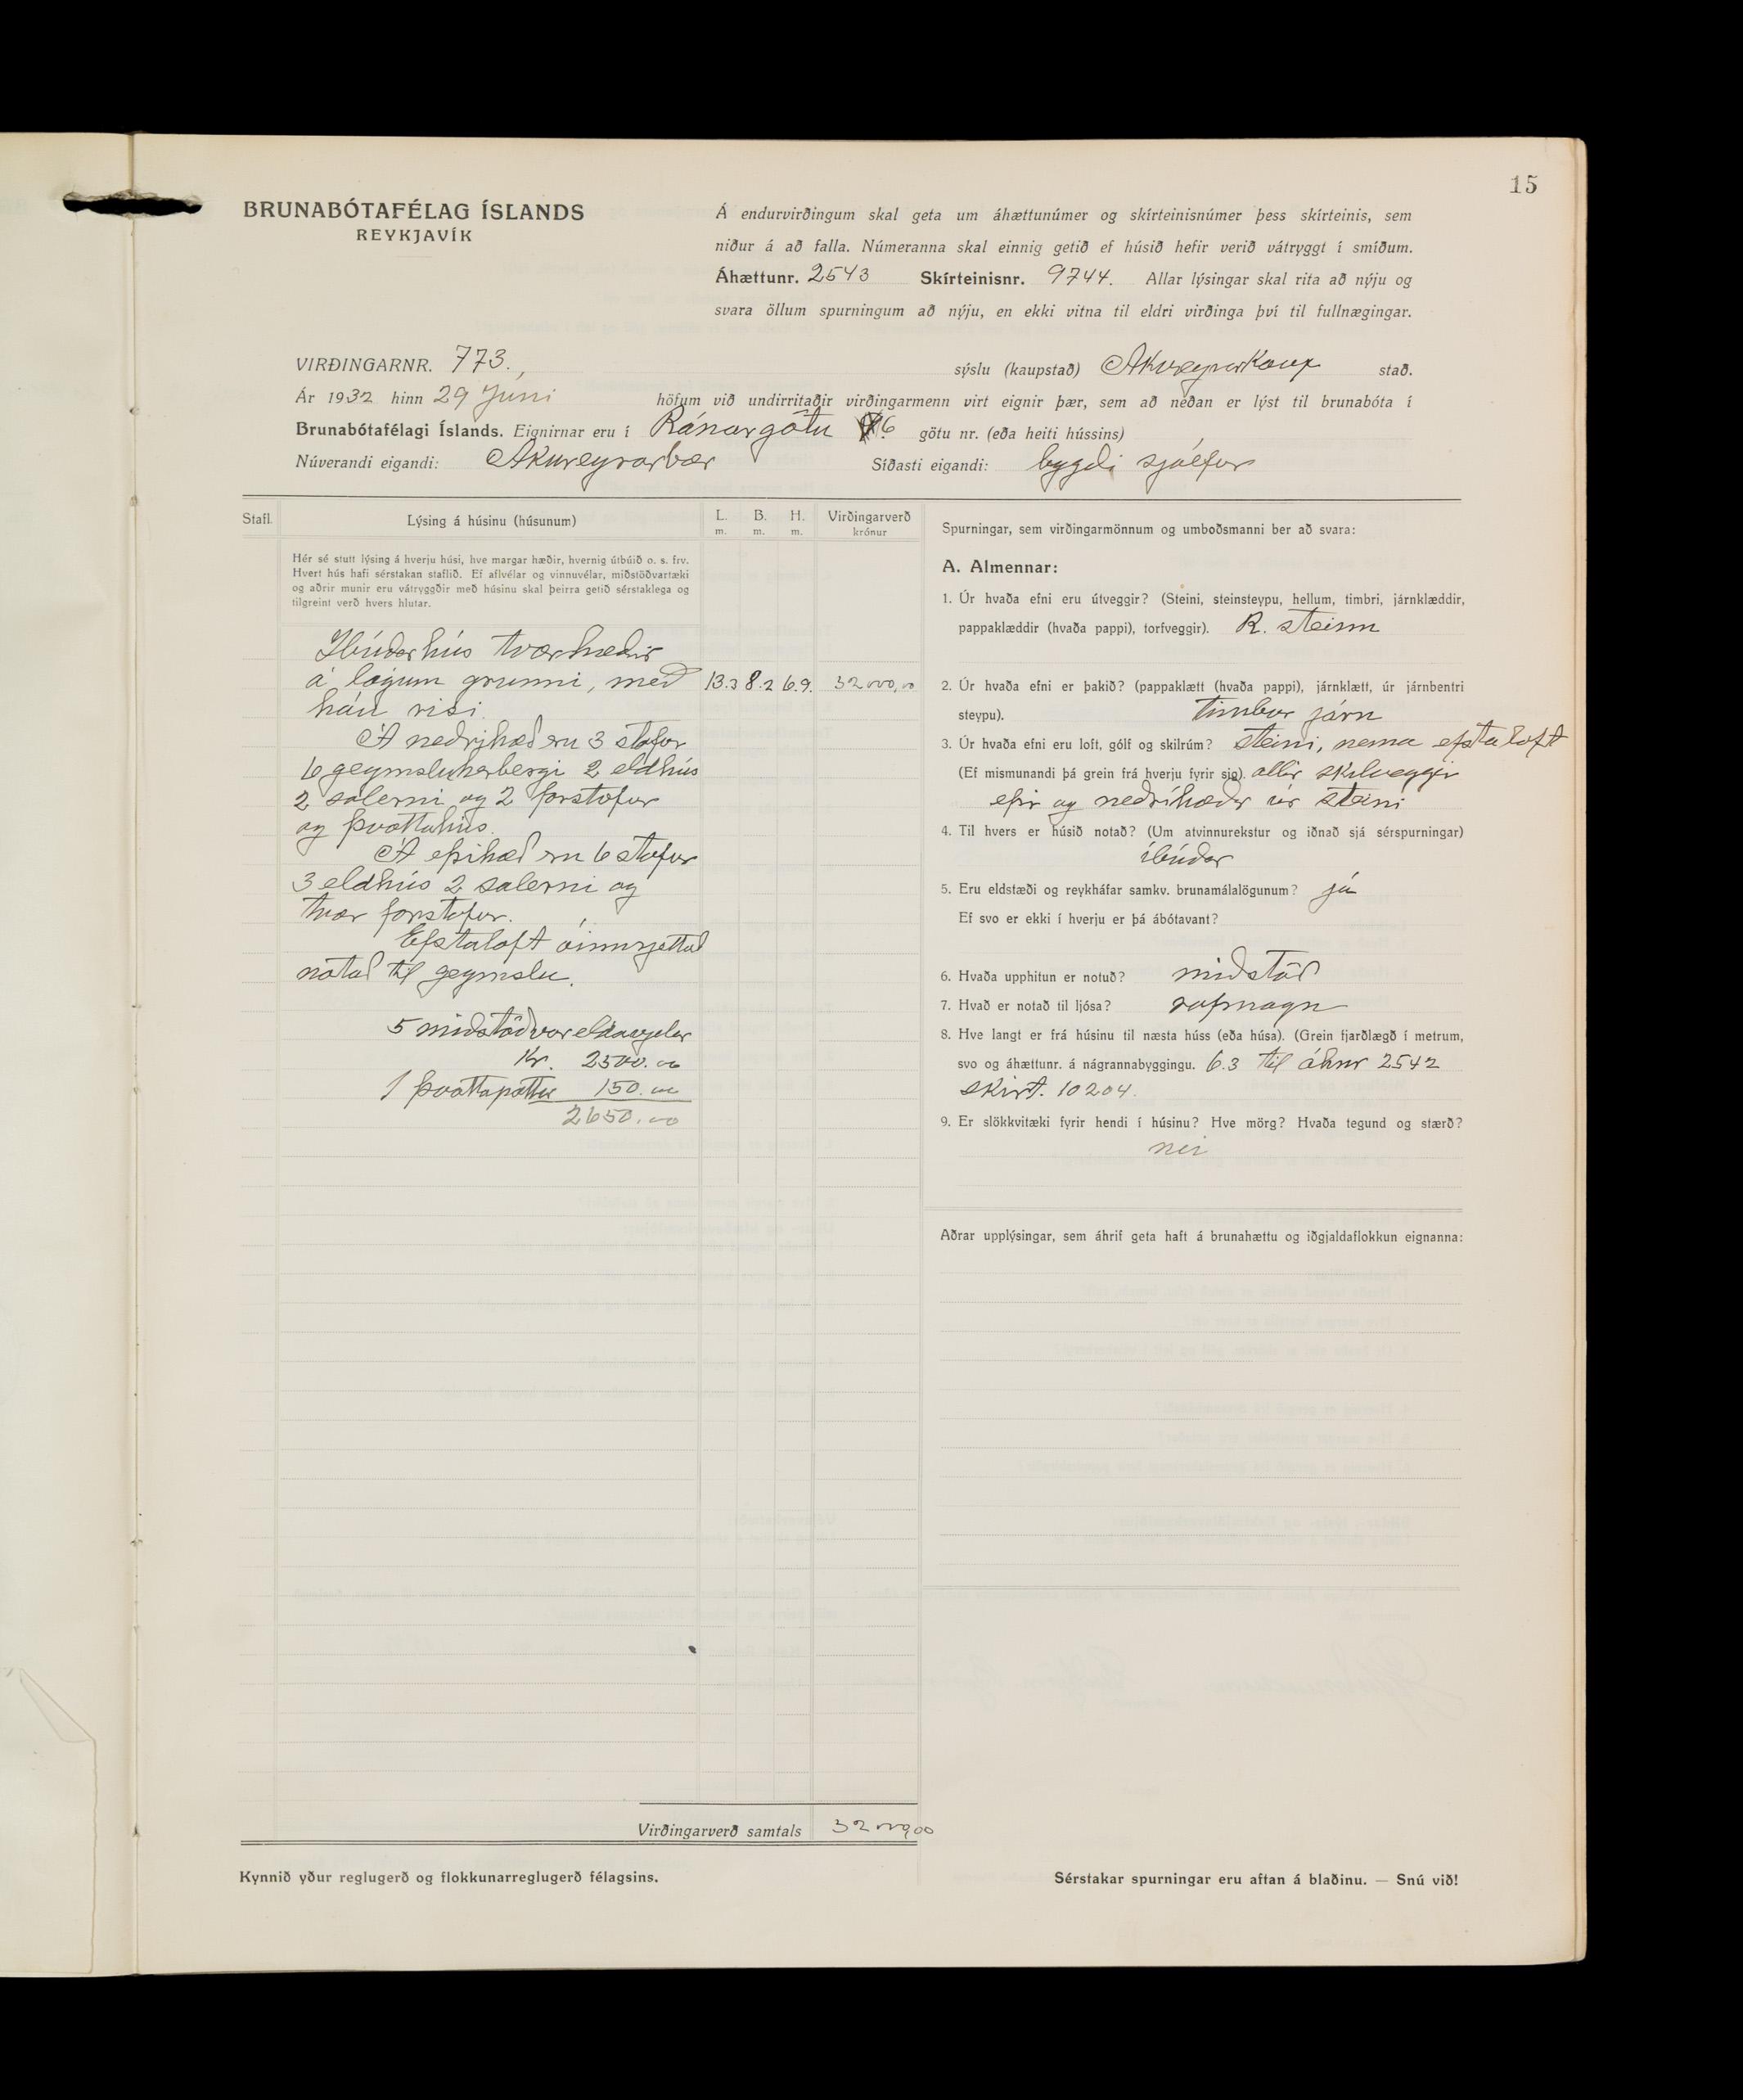 15
BRUNABÓTAFÉLAG ÍSLANDS
REYKJAVÍK
Á endurvirðingum skal geta um áhættunúmer og skírteinisnúmer þess skírteinis, sem
niður á að falla. Númeranna skal einnig getið ef húsið hefir verið vátryggt í smíðum.
Áhættunr. 2543 Skírteinisnr. 9744. Allar lýsingar skal rita að nýju og
svara öllum spurningum að nýju, en ekki vitna til eldri virðinga því til fullnægingar.
VIRÐINGARNR. 773., sýslu (kaupstað) Akureyrarkaup stað.
Ár 1932 hinn 29 Júní höfum við undirritaðir virðingarmenn virt eignir þær, sem að neðan er lýst til brunabóta í
Brunabótafélagi Íslands. Eignirnar eru í Ránargötu 6 götu nr. (eða heiti hússins)
Núverandi eigandi: Akureyrarbær Síðasti eigandi: bygði sjálfur
Stafl. Lýsing á húsinu (húsunum) L. m. B. m. H. m. Virðingarverð krónur
Hér sé stutt lýsing á hverju húsi, hve margar hæðir, hvernig útbúið o. s. frv.
Hvert hús hafi sérstakan staflið. Ef aflvélar og vinnuvélar, miðstöðvartæki
og aðrir munir eru vátryggðir með húsinu skal þeirra getið sérstaklega og
tilgreint verð hvers hlutar.
Íbúðarhús tvær hæðir
á lágum grunni, með 13.3 8.2 6.9. 32000,00
háu risi.
Á neðrihæð eru 3 stofur
6 geymsluherbergi 2 eldhús
2 salerni og 2 forstofur
og þvottahús.
Á efrihæð eru 6 stofur
3 eldhús 2 salerni og
tvær forstofur.
Efstaloft óinnrjettað
notað til geymslu.
5 miðstöðvareldavjelar
Kr. 2500.00
1 þvottapottur 150.00
2650.00
Virðingarverð samtals 32000,00
Spurningar, sem virðingarmönnum og umboðsmanni ber að svara:
A. Almennar:
1. Úr hvaða efni eru útveggir? (Steini, steinsteypu, hellum, timbri, járnklæddir,
pappaklæddir (hvaða pappi), torfveggir). R. steinn
2. Úr hvaða efni er þakið? (pappaklætt (hvaða pappi), járnklætt, úr járnbentri
steypu). timbur járn
3. Úr hvaða efni eru loft, gólf og skilrúm? steini, nema efstaloft
(Ef mismunandi þá grein frá hverju fyrir sig). allir skilveggir
efri og neðrihæðar úr steini
4. Til hvers er húsið notað? (Um atvinnurekstur og iðnað sjá sérspurningar)
íbúðar
5. Eru eldstæði og reykháfar samkv. brunamálalögunum? já
Ef svo er ekki í hverju er þá ábótavant?
6. Hvaða upphitun er notuð? miðstöð
7. Hvað er notað til ljósa? rafmagn
8. Hve langt er frá húsinu til næsta húss (eða húsa). (Grein fjarðlægð í metrum,
svo og áhættunr. á nágrannabyggingu. 6.3 til áhnr 2542
skirt. 10204.
9. Er slökkvitæki fyrir hendi í húsinu? Hve mörg? Hvaða tegund og stærð?
nei
Aðrar upplýsingar, sem áhrif geta haft á brunahættu og iðgjaldaflokkun eignanna:
Kynnið yður reglugerð og flokkunarreglugerð félagsins.
Sérstakar spurningar eru aftan á blaðinu. — Snú við!